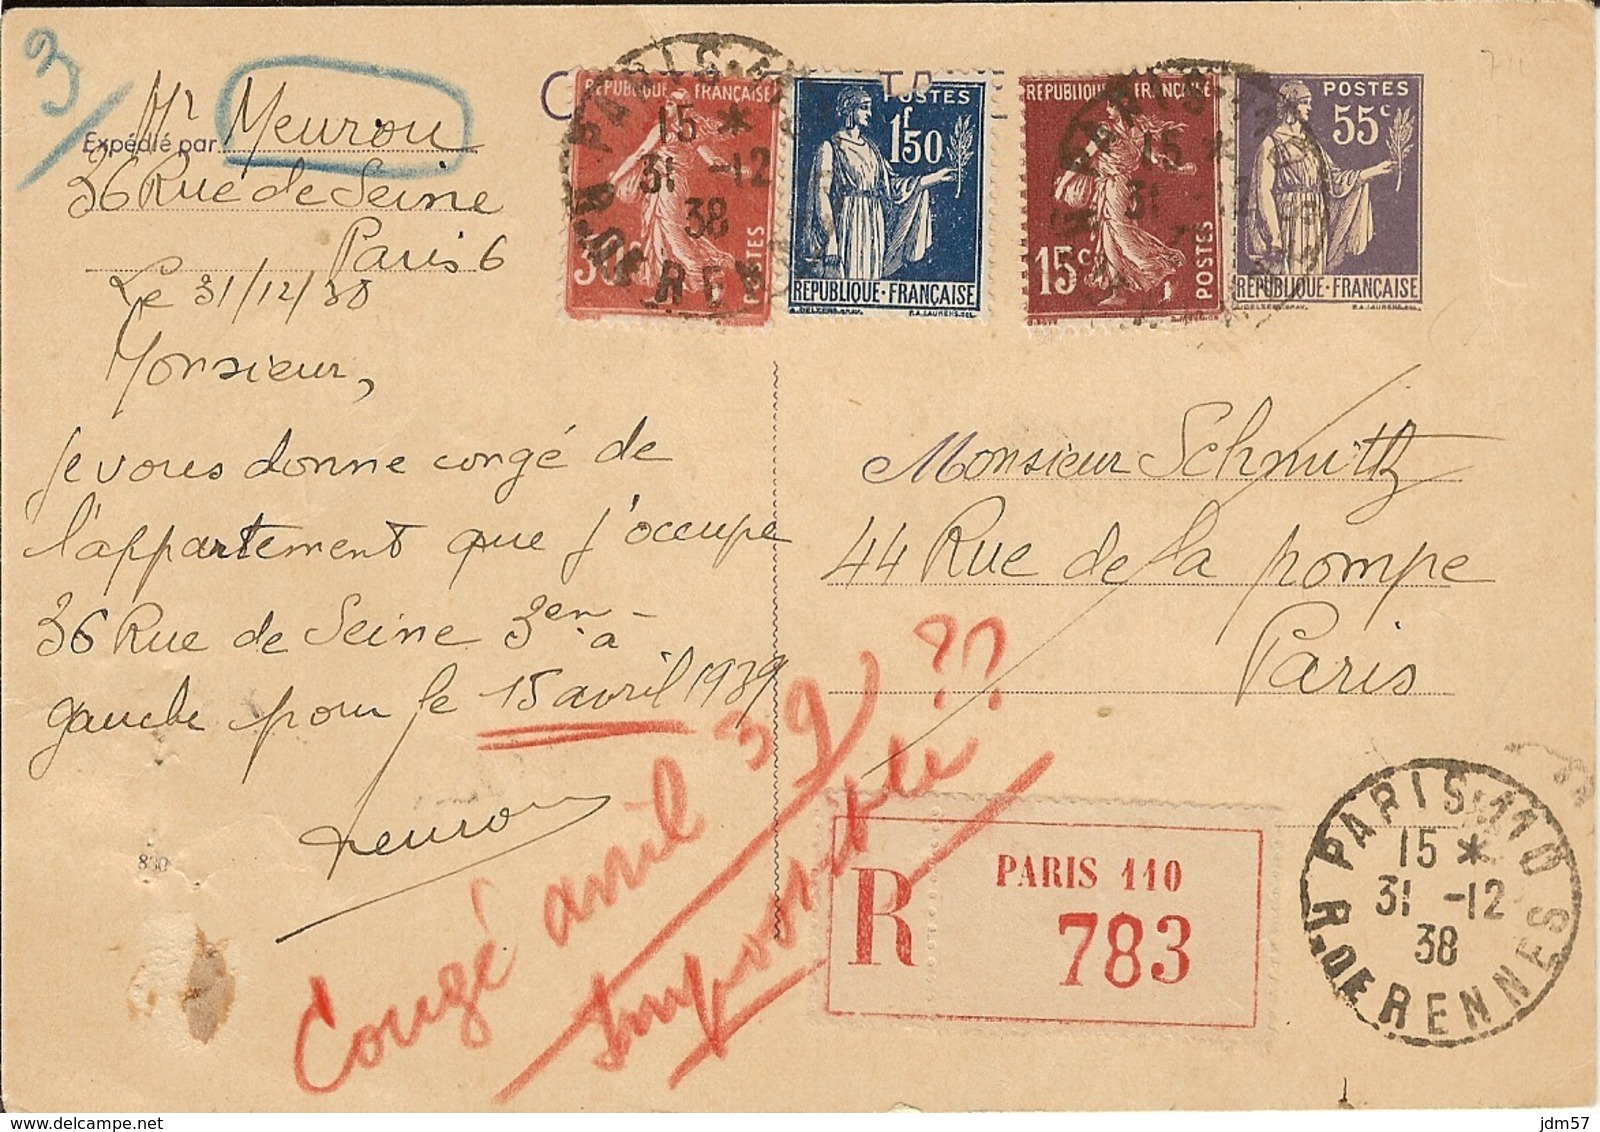 3
Mr Meurou
Expédié par
36 Rue de Seine
Paris 6
Le 31/12/38
Monsieur,
je vous donne congé de
l'appartement que j'occupe
36 Rue de Seine 3em à
gauche pour le 15 avril 1939
Meurou
830
RÉPUBLIQUE FRANÇAISE
30c
POSTES
POSTES
1f50
RÉPUBLIQUE-FRANÇAISE
RÉPUBLIQUE FRANÇAISE
15c
POSTES
POSTES
55c
RÉPUBLIQUE FRANÇAISE
PARIS 110
15 *
31 -12
38
R. DE RENNES
Monsieur Schmittz
44 Rue de la pompe
Paris
Congé avril 39 ??
Impossible
R
PARIS 110
783
PARIS 110
15 *
31 -12
38
R. DE RENNES
jdm57